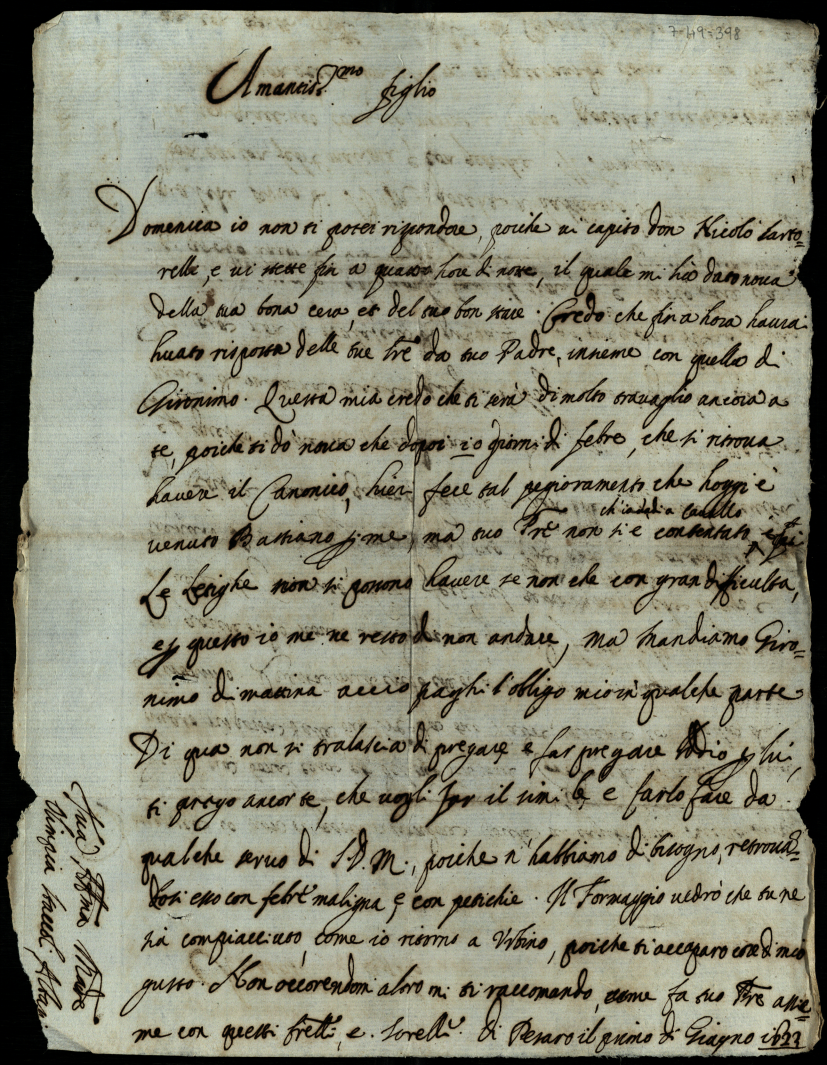 7-49-398
Amantiss.mo figlio
Domenica io non ti potei rispondere, poiche vi capitò don Nicolò Sarto-
relli, e vi stette fin a quattro hore di notte, il quale mi hà dato nova
della tua bona cera, et del tuo bon stare. Credo che fin a hora haurai
hauto risposta delle tue lre da tuo Padre, insieme con quella di
Gironimo. Questa mia credo che ti serà di molto travaglio ancora a
te, poiche ti dò nova che dopoi 10 giorni di febre, che si ritrova
havere il Canonico, hier fece tal pegioramento che hoggi è
ch'io vadi a cavallo
venuto Bastiano p me, ma tuo Pre non si è contentato
Le Letighe non si possono havere se non che con gran difficultà,
e p questo io me ne resto di non andare, ma mandiamo Giro-
nimo di mattina acciò paghi l'obligo mio in qualche parte
Di qua non si tralascia di pregare e far pregare Iddio p lui,
ti prego ancor te, che vogli far il simile e farlo fare da
qualche servo di S.D.M., poiche n'habbiamo di bisogno, retrovan-
dosi esso con febre maligna e con petichie. Il Formaggio vedrò che tu ne
sia compiacciuto, come io ritorno a Urbino, poiche ti accaparo cose di mio
gusto. Non occorendomi altro mi ti raccomando, come fa tuo Pre assie-
me con questi fretti, e sorelle. di Pesaro il primo di Giugno 1623
Tua Aff.ma Madre
Olimpia Staccoli Albani